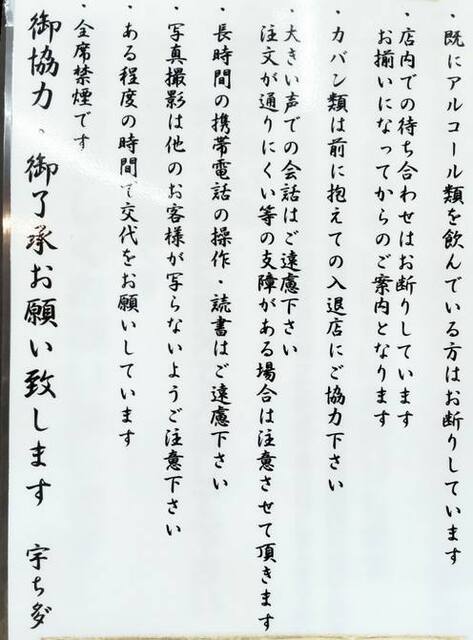 ・既にアルコール類を飲んでいる方はお断りしています
・店内での待ち合わせはお断りしています
お揃いになってからのご案内となります
・カバン類は前に抱えての入退店にご協力下さい
・大きい声での会話はご遠慮下さい
注文が通りにくい等の支障がある場合は注意させて頂きます
・長時間の携帯電話の操作・読書はご遠慮下さい
・写真撮影は他のお客様が写らないようご注意下さい
・ある程度の時間で交代をお願いしています
・全席禁煙です
御協力、御了承お願い致します　宇ち多゛